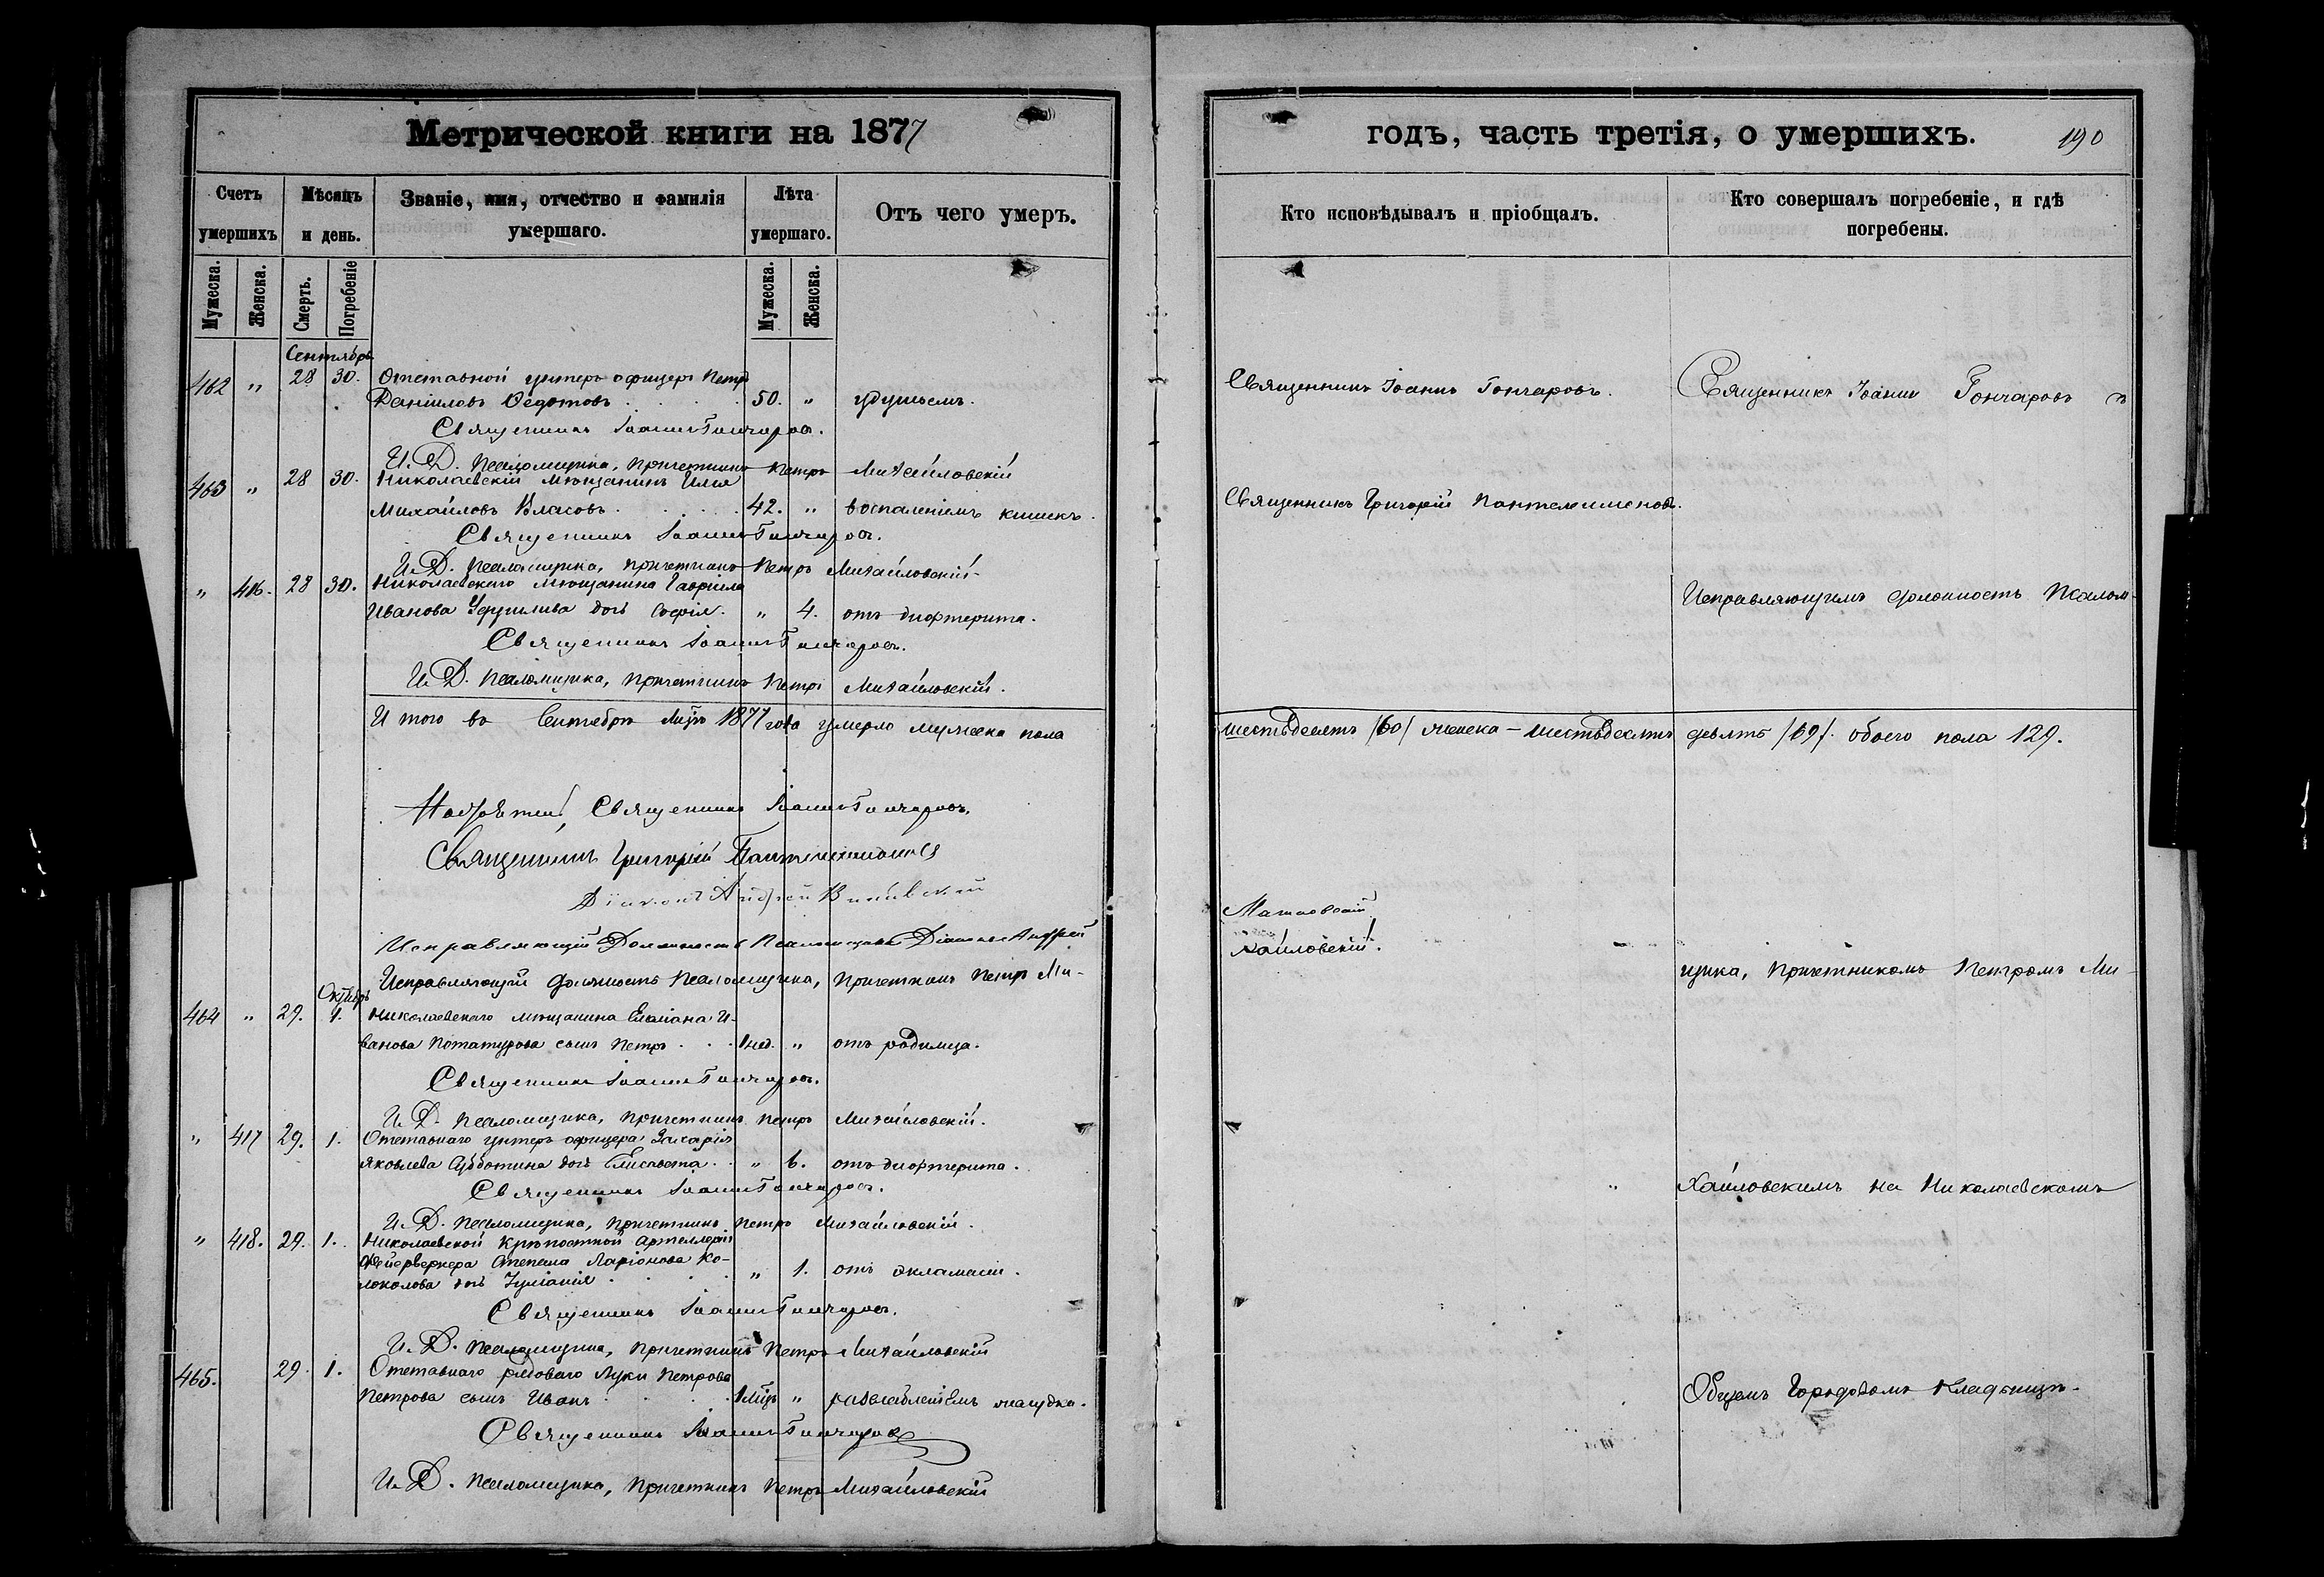 Метрической книги на 1877
Счетъ умершихъ
Мѣсяцъ и день.
Званіе, имя, отчество и фамилія умершаго.
Лѣта умершаго.
Отъ чего умеръ.
Мужеска.
Женска.
Смерть.
Погребеніе
Мужеска.
Женска.
Сентябрь
462 " 28 30. Отставной унтеръ офицеръ Петръ
Даніиловъ Ѳедотовъ . . . . 50. " удушьемъ.
Священникъ Іоаннъ Гончаровъ.
И. Д. Псаломщика, Причетникъ Петръ Михайловскій
463 " 28 30. Николаевскій мѣщанинъ Илья
Михайловъ Власовъ . . . . 42. " воспаленіемъ кишекъ.
Священникъ Іоаннъ Гончаровъ.
И. Д. Псаломщика, Причетникъ Петръ Михайловскій
" 416. 28 30. Николаевскаго мѣщанина Гавріила
Иванова дочь Софія. " 4. отъ дифтерита.
Священникъ Іоаннъ Гончаровъ.
И. Д. Псаломщика, Причетникъ Петръ Михайловскій.
И того въ Сентябрѣ мцѣ 1877 года умерло мужеска пола
Священникъ Іоаннъ Гончаровъ.
Священникъ Григорій Пантелеимоновъ
Діаконъ Андрей
Исправляющій Должность Псаломщика Діаконъ Андрей
Исправляющій должность Псаломщика, Причетникъ Петръ Ми-
Октябрь
464 " 29. 1. Николаевскаго мѣщанина Емеліана И-
ванова Потатурова сынъ Петръ . . . 1 нед. " отъ родимца.
Священникъ Іоаннъ Гончаровъ.
И. Д. Псаломщика, Причетникъ Петръ Михайловскій.
" 417 29. 1. Отставнаго унтеръ офицера Захарія
Яковлева Субботина дочь Елисавета . . " 6. отъ дифтерита.
Священникъ Іоаннъ Гончаровъ.
И. Д. Псаломщика, Причетникъ Петръ Михайловскій.
" 418. 29. 1. Николаевской крѣпостной артиллеріи
фейерверкера Степана Ларіонова Ко-
локолова дочь Іуліанія . . . . " 1. отъ
Священникъ Іоаннъ Гончаровъ.
И. Д. Псаломщика, Причетникъ Петръ Михайловскій
465. 29. 1. Отставнаго рядоваго Луки Петрова
Петрова сынъ Иванъ . . . . 1 мцъ " разслабленіемъ желудка.
Священникъ Іоаннъ Гончаровъ
И. Д. Псаломщика, Причетникъ Петръ Михайловскій
годъ, часть третія, о умершихъ.
190
Кто исповѣдывалъ и пріобщалъ.
Кто совершалъ погребеніе, и гдѣ погребены.
Священникъ Іоаннъ Гончаровъ.
Священникъ Іоаннъ Гончаровъ съ
Священникъ Григорій Пантелеимоновъ.
Исправляющимъ должность Псалом-
шестьдесятъ /60/ женска - шестьдесятъ девять /69/. обоего пола 129.
хайловскій.
щика, Причетникомъ Петромъ Ми-
хайловскимъ на Николаевскомъ
Общемъ Городовомъ Кладбищѣ.